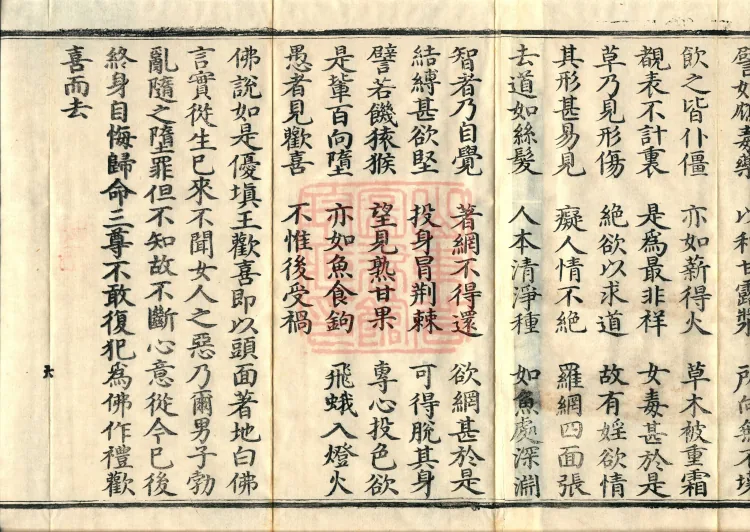 譬如毒藥　以和甘露漿　所向無不壞
飲之皆仆僵　亦如薪得火　草木被重霜
覩表不計裏　是爲最非祥　女毒甚於是
草乃見形傷　絶欲以求道　故有婬欲情
其形甚易見　癡人情不絶　羅網四面張
去道如絲髮　人本清淨種　如魚處深淵
智者乃自覺　著網不得還　欲網甚於是
結縛甚欲堅　投身冒荆棘　可得脫其身
譬若饑猿猴　望見熟甘果　專心投色欲
是輩百向墮　亦如魚食鉤　飛蛾入燈火
愚者見歡喜　不惟後受禍
佛說如是優填王歡喜即以頭面著地白佛
言實從生已來不聞女人之惡乃爾男子勃
亂隨之墮罪但不知故不斷心意從今已後
終身自悔歸命三尊不敢復犯爲佛作禮歡
喜而去
六